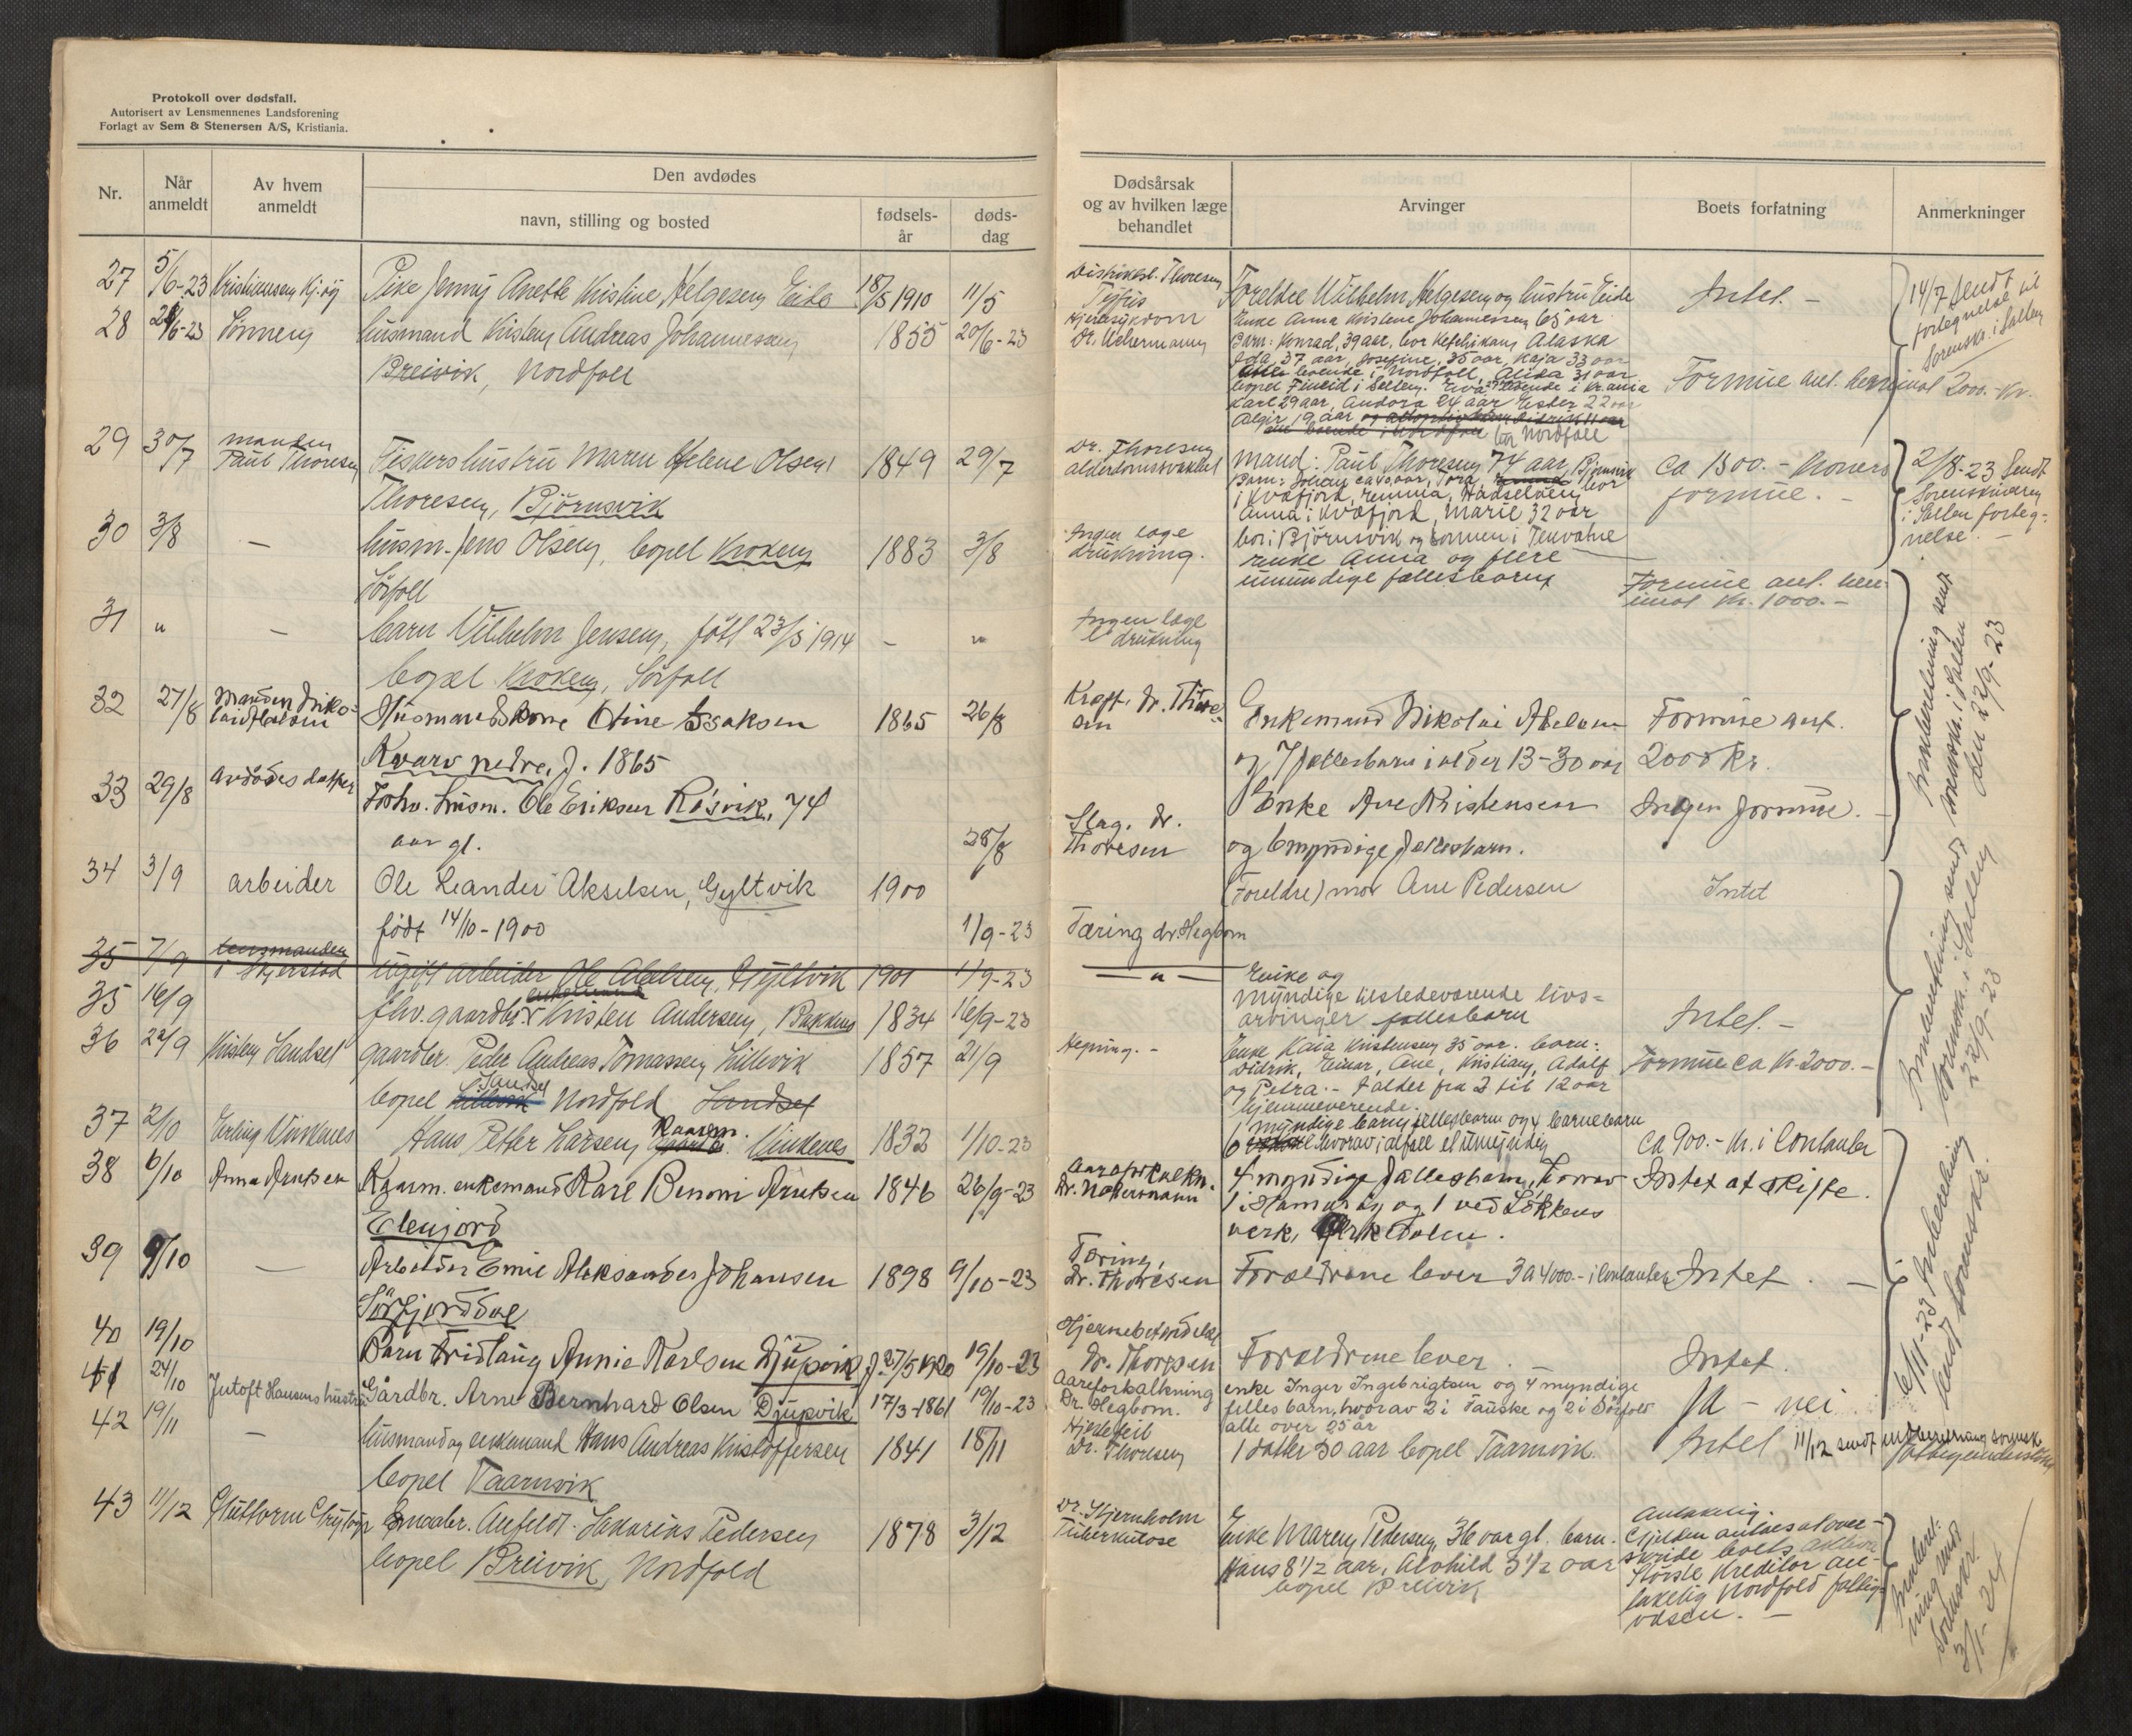 Protokoll over dødsfall.
Autorisert av Lensmennenes Landsforening
Forlagt av Sem & Stenersen A/S, Kristiania.
Nr.
Når anmeldt
Av hvem anmeldt
Den avdødes
navn, stilling og bosted
fødsels-år
døds-dag
Dødsårsak og av hvilken læge behandlet
Arvinger
Boets forfatning
Anmerkninger
27 5/6-23 Pike Jenny Anette Kristine Helgesen Eide 18/8 1910 11/5
Tyfus
Foreldre Wilhelm Helgesen og hustru Eide
Intet. -
14/7 sendt
fortegnelse til
Sorenskr. i Salten
28 Sønnen husmand Kristen Andreas Johannessen 1855 20/6-23
Breivik, Nordfoll
Hjertesykdom
Enke Anna Kristine Johannessen 65 aar
Barn: Konrad, 39 aar, bor Ketchikan Alaska
Ida, 37 aar, Josefine, 35 aar, Kaja 33 aar
boende i Nordfoll, Alida 31 aar
Karl 29 aar, Andora 24 aar Ester 22 aar
19 aar
bor Nordfoll
Formue ant. henimot 2000.- kr.
29 30/7 manden Paul Thoresen Fiskershustru Maren Helene Olsen 1849 29/7
Thoresen, Björnsvik
Dr. Thoresen
alderdomssvakhet
mand: Paul Thoresen 74 aar, Björnsvik
Barn: Johan ca 40 aar, Tora, bor
i Kvæfjord, Emma, Hadseløen,
Anna i Kvæfjord, Marie 32 aar
bor i Björnsvik
ca 1500.-
formue. -
2/8-23 sendt
Sorenskriveren
i Salten forteg-
nelse. -
30 3/8 - husm. Jens Olsen, bopel Kroken 1883 3/8
Sörfoll
Ingen læge
drukning.
enke Anna og flere
umundige fællesbarn
Formue ant. hen-
imot kr. 1000.-
31 " - barn Vilhelm Jensen, født 23/3 1914 - "
bopel Kroken, Sörfoll
Ingen læge
drukning
32 27/8 Manden Nikolai Husmandskone Oline Isaksen 1865 26/8
Kvarv nedre, f. 1865
Kræft. dr. Thoresen
Enkemand Nikolai Abelsen
og 7 fællesbarn i alder 13-30 aar
Formue ant.
2000 kr.
Indberetning sendt
sorenskr. i Salten
den 12/9-23
33 29/8 Avdødes datter Forhv. husm. Ole Eriksen Røsvik, 74
aar gl. 28/8
Slag. dr.
Thoresen
Enke Ane Kristensen
og 6 myndige fællesbarn.
Ingen formue.
34 3/9 arbeider Ole Leander Akselsen, Gyltvik 1900
født 14/10-1900 1/9-23
Tæring dr. Hegbom
(Foreldre) mor Ane Pedersen
Intet
35 7/9 lensmanden i Skjerstad ugift arbeider Ole Abelsen, Gyltvik 1901 1/9-23
- " -
35 16/9 fhv. gaardbr. enkemand Kristen Andersen, Bakken 1834 16/9-23
Enke og
myndige tilstedeværende livs-
arvinger fællesbarn
Intet. -
36 22/9 Kristen Sandset gaardbr. Peder Andreas Tomassen Lillevik 1857 21/9
bopel Lillevik Sandset Nordfold Sandset
Enke Kaia Kristensen 35 aar. barn:
Didrik, Einar, Ane, Kristian, Adolf
og Petra.- I alder fra 2 til 12 aar
hjemmeværende.
Formue ca kr. 2000.-
Indberetning sendt
Sorenskr. i Salten
22/9-23
37 2/10 Erling Vinkenes Hans Petter Larsen Kaarm. Vinkenes 1832 1/10-23
myndige barn, fellesbarn og 4 barnebarn
ca 900.- kr. i kontanter
38 6/10 Anna Arntsen Kaarm. enkemand Karl Benoni Arntsen 1846 26/9-23
Elenjord
Aareforkalkn.
4 myndige fællesbarn, hvorav
1 i Hamarøy og 1 ved Løkkens
verk, Orkedalen.
Intet at skifte.
39 9/10 - Arbeider Emil Aleksander Johansen 1898 9/10-23
Sörfjorddal
Tæring,
Dr. Thoresen
Forældrene lever 3 a 4000.- i kontanter
Intet. -
6/11-23 Indberetning
sendt Sorenskr.
40 19/10 Barn Fridlaug Annie Karlsen Djupvik f. 27/5 1920 19/10-23
Hjernebetændelse
Dr. Thoresen
Forældrene lever. -
Intet.
41 24/10 Jutoft Hansens hustru Gårdbr. Arne Bernhard Olsen Djupvik 17/3-1861 19/10-23
Aareforkalkning
Dr. Hegbom.
enke Inger Ingebrigtsen og 4 myndige
felles barn, hvorav 2 i Fauske og 2 i Sørfold
alle over 25 år
Ja - nei
42 19/11 - husmand og enkemand Hans Andreas Kristoffersen 1841 18/11
bopel Taarnvik
Hjertefeil
Dr. Thoresen
1 datter 30 aar bopel Taarnvik.
Intet
11/12 sendt indberetning sorensk.
43 11/12 Smaabr. Anfeldt Sakarias Pedersen 1878 3/12
bopel Breivik, Nordfold
Dr. Stjernholm
Tuberkulose
Enke Maren Pedersen 36 aar gl. barn.
Hans 8 1/2 aar, Alvhild 3 1/2 aar
bopel Breivik
Gjelden antaes at over-
skride boets aktiva
Største kreditor an-
takelig Nordfold fattig-
væsen. -
Indberet-
ning sendt
Sorenskr.
3/1-24